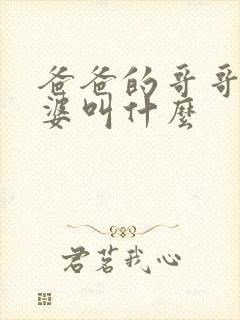 爸爸的哥哥
婆叫什麼
君茗我心